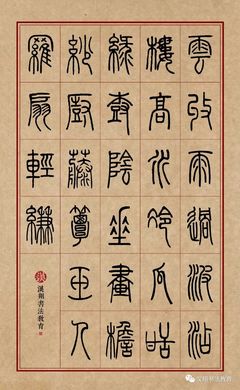 雲收雨過波沾
樓高水冷瓜甜
綠樹陰垂畫檐
紗廚藤簟玉人
羅扇輕縑
漢翔書法教育
汉翔书法教育